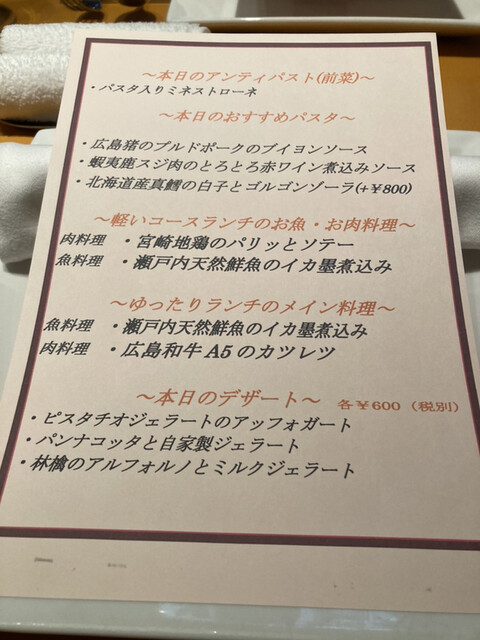 ～本日のアンティパスト(前菜)～
・パスタ入りミネストローネ
～本日のおすすめパスタ～
・広島猪のプルドポークのブイヨンソース
・蝦夷鹿スジ肉のとろとろ赤ワイン煮込みソース
・北海道産真鱈の白子とゴルゴンゾーラ(+￥800)
～軽いコースランチのお魚・お肉料理～
肉料理 ・宮崎地鶏のパリッとソテー
魚料理 ・瀬戸内天然鮮魚のイカ墨煮込み
～ゆったりランチのメイン料理～
魚料理 ・瀬戸内天然鮮魚のイカ墨煮込み
肉料理 ・広島和牛 A5 のカツレツ
～本日のデザート～ 各￥600 (税別)
・ピスタチオジェラートのアッフォガート
・パンナコッタと自家製ジェラート
・林檎のアルフォルノとミルクジェラート